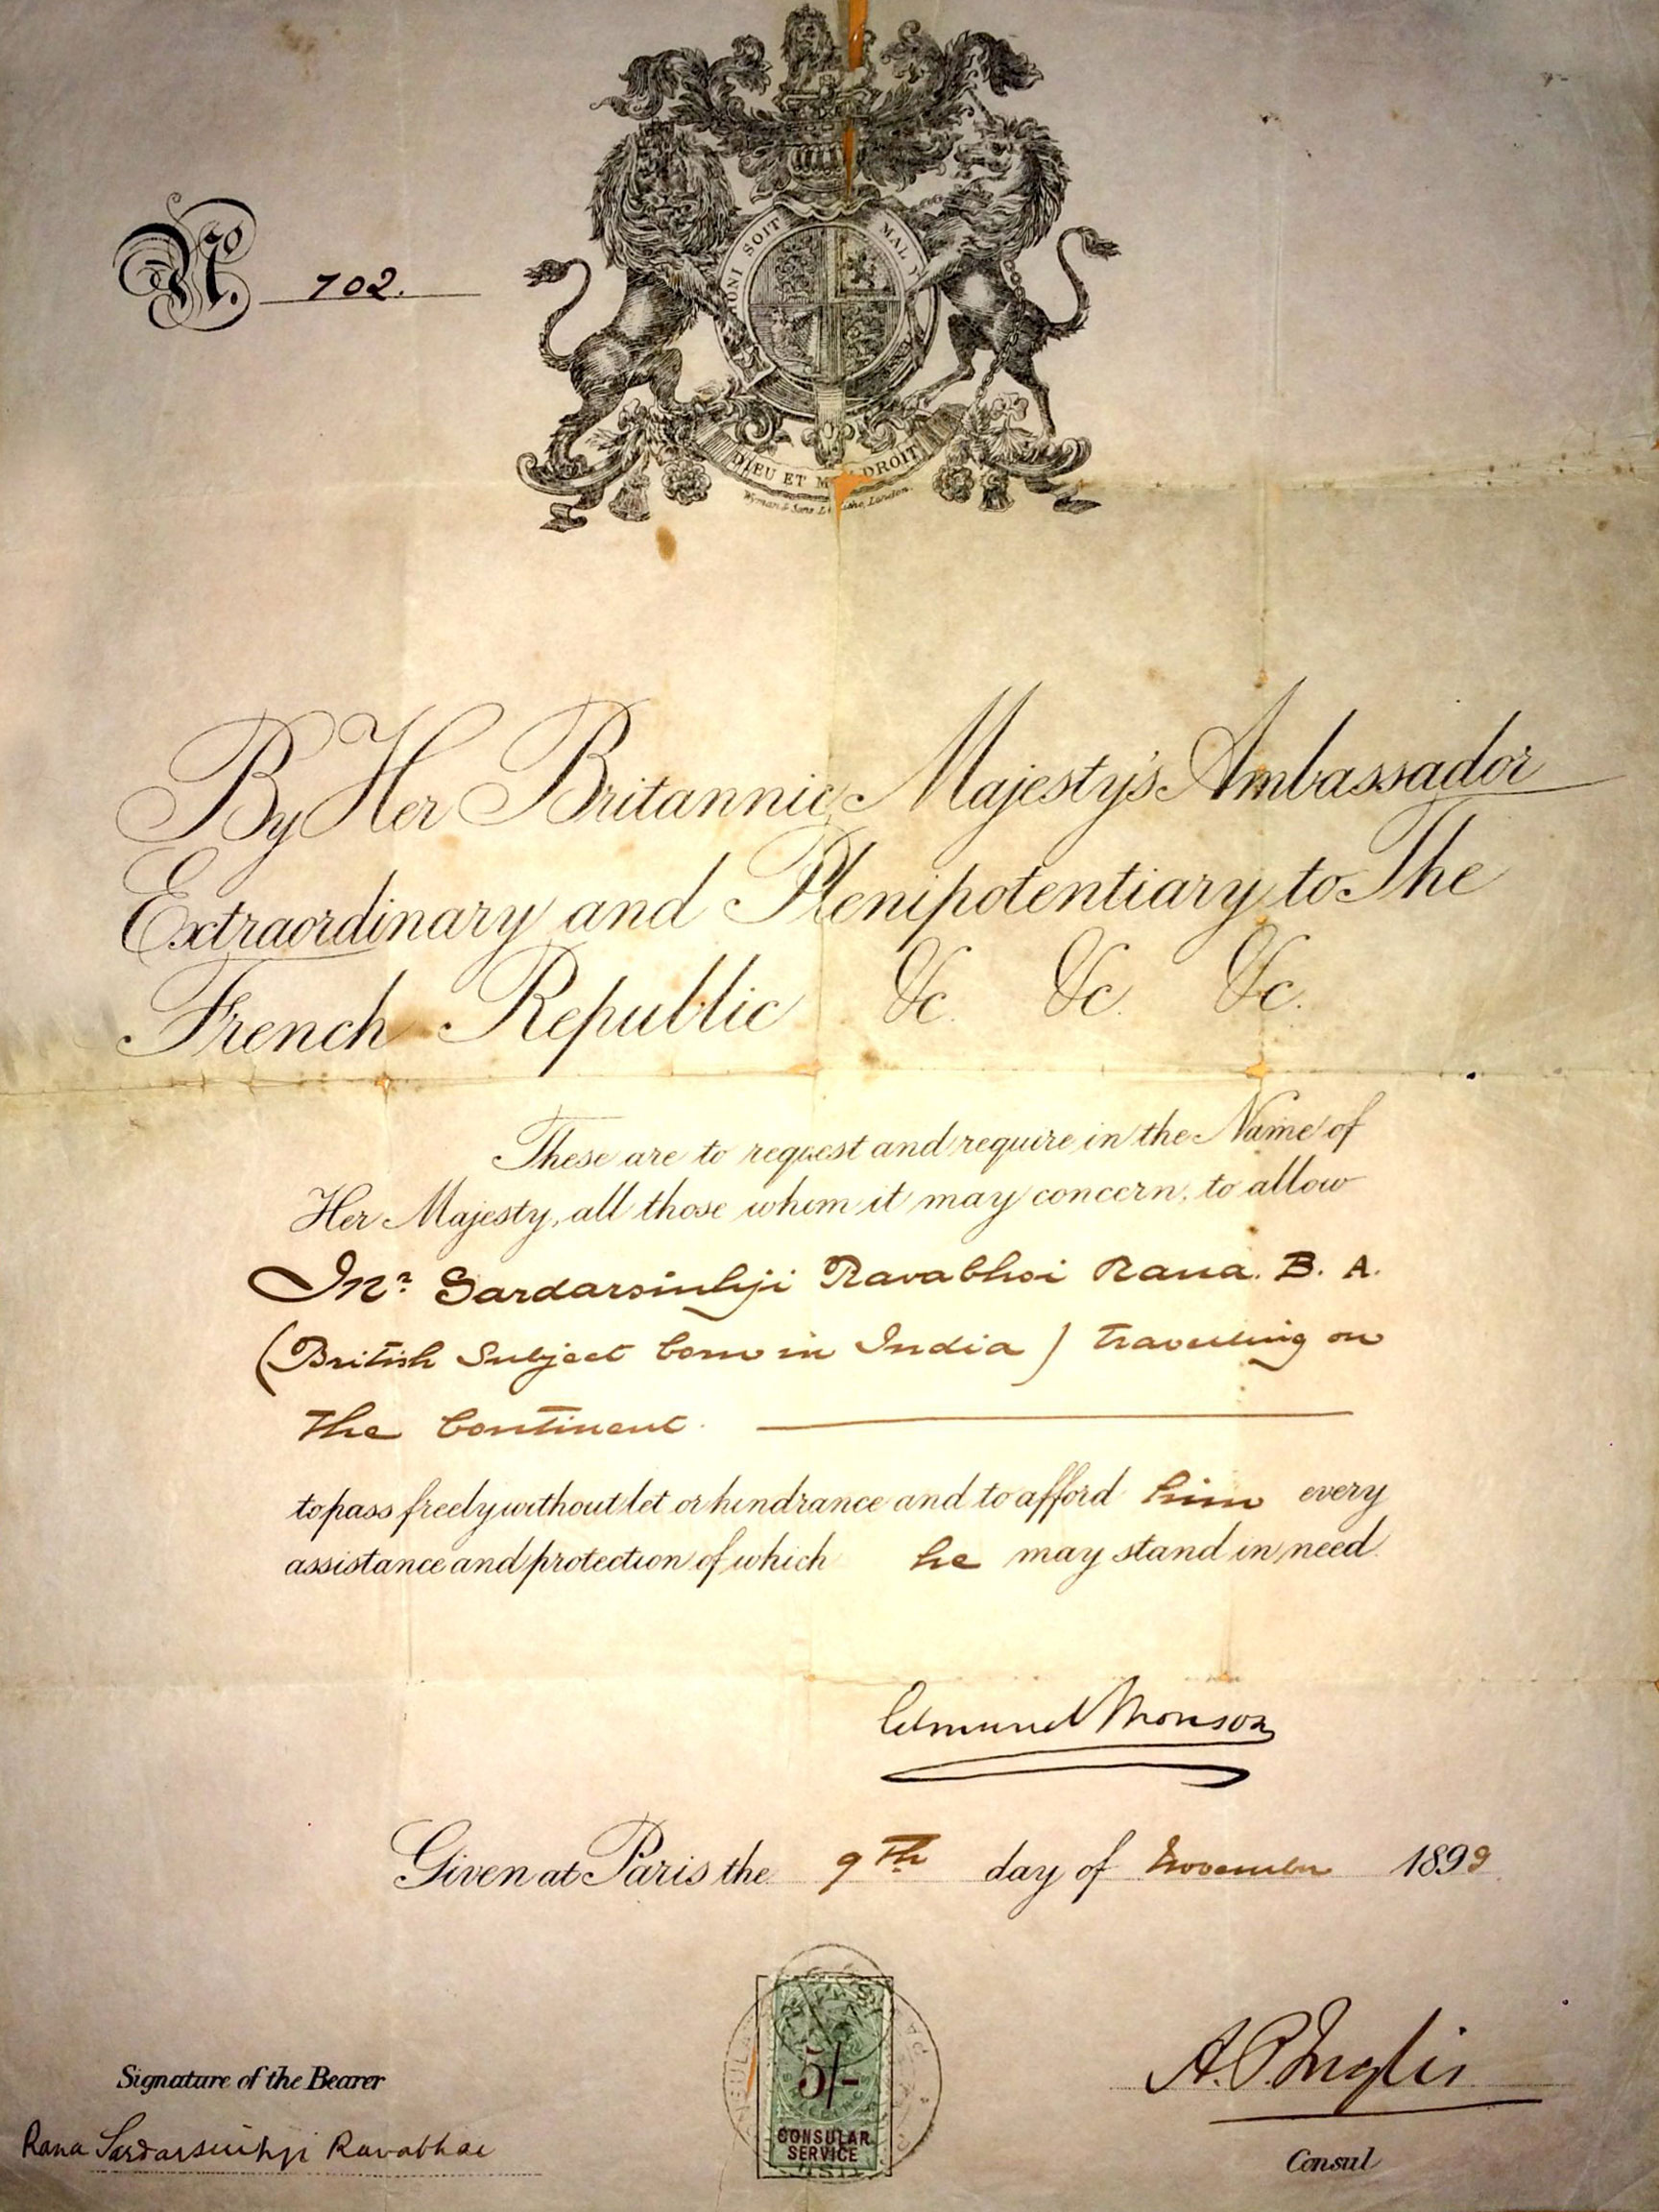 No. 702.
HONI SOIT MAL Y
DIEU ET M DROIT
Wyman & Sons Ld Litho, London.
By Her Britannic Majesty's Ambassador
Extraordinary and Plenipotentiary to The
French Republic &c. &c. &c.
These are to request and require in the Name of
Her Majesty, all those whom it may concern, to allow
Mr. Sardarsinhji Ravabhai Rana. B. A.
(British Subject born in India) travelling on
the Continent.
to pass freely without let or hindrance and to afford him every
assistance and protection of which he may stand in need.
Edmund Monson
Given at Paris the 9th day of November 1899
5/-
CONSULAR
SERVICE
A. P. Inglis
Consul
Signature of the Bearer
Rana Sardarsinhji Ravabhai